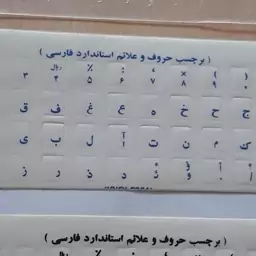 ( برچسب حروف و علائم استاندارد فارسی )
( ) × ، : ٪ ریال
۰ ۹ ۸ ۷ ۶ ۵ ۴ ۳
ج ح خ ه ع غ ف ق
ک م ن ت آ ا ل ب ی
أ ؤ و د ذ ر ز
( برچسب حروف و علائم استاندارد فارسی )